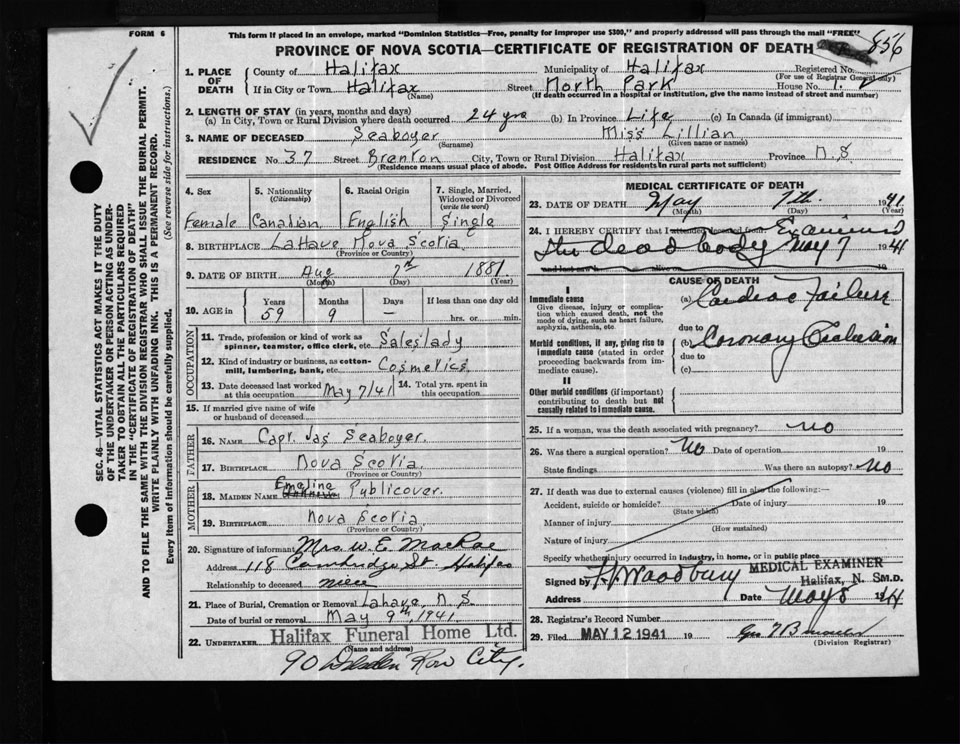 FORM 6
This form if placed in an envelope, marked "Dominion Statistics—Free, penalty for improper use $300," and properly addressed will pass through the mail "FREE"
PROVINCE OF NOVA SCOTIA—CERTIFICATE OF REGISTRATION OF DEATH
856
SEC. 46—VITAL STATISTICS ACT MAKES IT THE DUTY
OF THE UNDERTAKER OR PERSON ACTING AS UNDER-
TAKER TO OBTAIN ALL THE PARTICULARS REQUIRED
IN THE "CERTIFICATE OF REGISTRATION OF DEATH"
AND TO FILE THE SAME WITH THE DIVISION REGISTRAR WHO SHALL ISSUE THE BURIAL PERMIT.
WRITE PLAINLY WITH UNFADING INK. THIS IS A PERMANENT RECORD.
Every item of Information should be carefully supplied. (See reverse side for instructions.)
1. PLACE OF DEATH
County of Halifax Municipality of Halifax Registered No.
(For use of Registrar General only)
If in City or Town Halifax Street North Park House No. 1.
(Name) (If death occurred in a hospital or institution, give the name instead of street and number)
2. LENGTH OF STAY (in years, months and days)
(a) In City, Town or Rural Division where death occurred 24 yrs (b) In Province Life (c) In Canada (if immigrant)
3. NAME OF DECEASED Seaboyer Miss Lillian
(Surname) (Given name or names)
RESIDENCE No. 37 Street Brenton City, Town or Rural Division Halifax Province N.S
(Residence means usual place of abode. Post Office Address for residents in rural parts not sufficient)
4. Sex Female
5. Nationality (Citizenship) Canadian
6. Racial Origin English
7. Single, Married, Widowed or Divorced (write the word) Single
8. BIRTHPLACE LaHave Nova Scotia
(Province or Country)
9. DATE OF BIRTH Aug 7th 1881
(Month) (Day) (Year)
10. AGE in Years 59 Months 9 Days — If less than one day old hrs. or min.
OCCUPATION
11. Trade, profession or kind of work as spinner, teamster, office clerk, etc. Saleslady
12. Kind of industry or business, as cotton-mill, lumbering, bank, etc. Cosmetics
13. Date deceased last worked at this occupation May 7/41 14. Total yrs. spent in this occupation
15. If married give name of wife or husband of deceased
FATHER
16. NAME Capt. Jas Seaboyer.
17. BIRTHPLACE Nova Scotia.
(Province or Country)
MOTHER
18. MAIDEN NAME Emeline Publicover.
19. BIRTHPLACE Nova Scotia
(Province or Country)
20. Signature of informant Mrs. W. E. MacRae
Address 118 Cambridge St. Halifax
Relationship to deceased niece
21. Place of Burial, Cremation or Removal Lahave, N.S.
Date of burial or removal May 9th, 1941.
22. UNDERTAKER Halifax Funeral Home Ltd.
(Name and address)
90 Row City.
MEDICAL CERTIFICATE OF DEATH
23. DATE OF DEATH May 7th. 1941
(Month) (Day) (Year)
24. I HEREBY CERTIFY that I attended deceased from Examined
the dead body May 7 1941
and last saw h alive on
CAUSE OF DEATH
I
Immediate cause
Give disease, injury or complication which caused death, not the mode of dying, such as heart failure, asphyxia, asthenia, etc.
(a) Cardiac Failure
due to
Morbid conditions, if any, giving rise to immediate cause (stated in order proceeding backwards from immediate cause).
(b) Coronary Occlusion
due to
(c)
II
Other morbid conditions (if important) contributing to death but not causally related to immediate cause.
25. If a woman, was the death associated with pregnancy? No
26. Was there a surgical operation? No Date of operation 19
State findings Was there an autopsy? No
27. If death was due to external causes (violence) fill in also the following:—
Accident, suicide or homicide? Date of injury 19
(State which)
Manner of injury
(How sustained)
Nature of injury
Specify whether injury occurred in industry, in home, or in public place
Signed by Woodbury MEDICAL EXAMINER
Halifax, N. S. M.D.
Address Date May 8 1941
28. Registrar's Record Number
29. Filed MAY 12 1941 19
(Division Registrar)